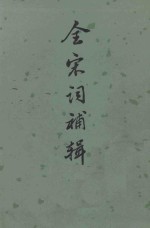 全宋词補辑